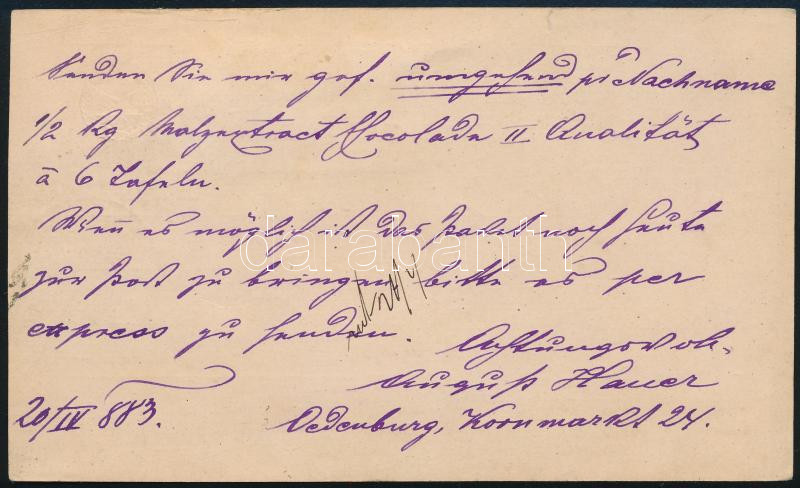 Senden Sie mir gef. umgehend pr Nachname
1/2 Kg Malzextract Chocolade II Qualität
à 6 Tafeln.
Wen̄ es möglich ist das Paket noch heute
zur Post zu bringen bitte es per
express zu senden.
Achtungsvoll.
August Hauer
20/IV 883.
Oedenburg, Kornmarkt 24.
darabanth